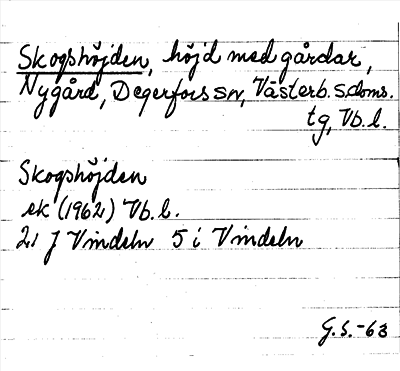 Skogshöjden, höjd med gårdar,
Nygård, Degerfors sn, Västerb. s. doms.
tg, Vb. l.
Skogshöjden
ek (1962) Vb. l.
21 J Vindeln 5 i Vindeln
G. S. -63